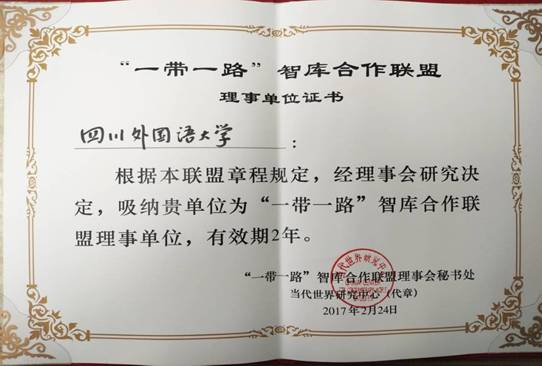 “一带一路”智库合作联盟
理事单位证书
四川外国语大学：
根据本联盟章程规定，经理事会研究决
定，吸纳贵单位为“一带一路”智库合作联
盟理事单位，有效期2年。
“一带一路”智库合作联盟理事会秘书处
当代世界研究中心（代章）
2017年2月24日